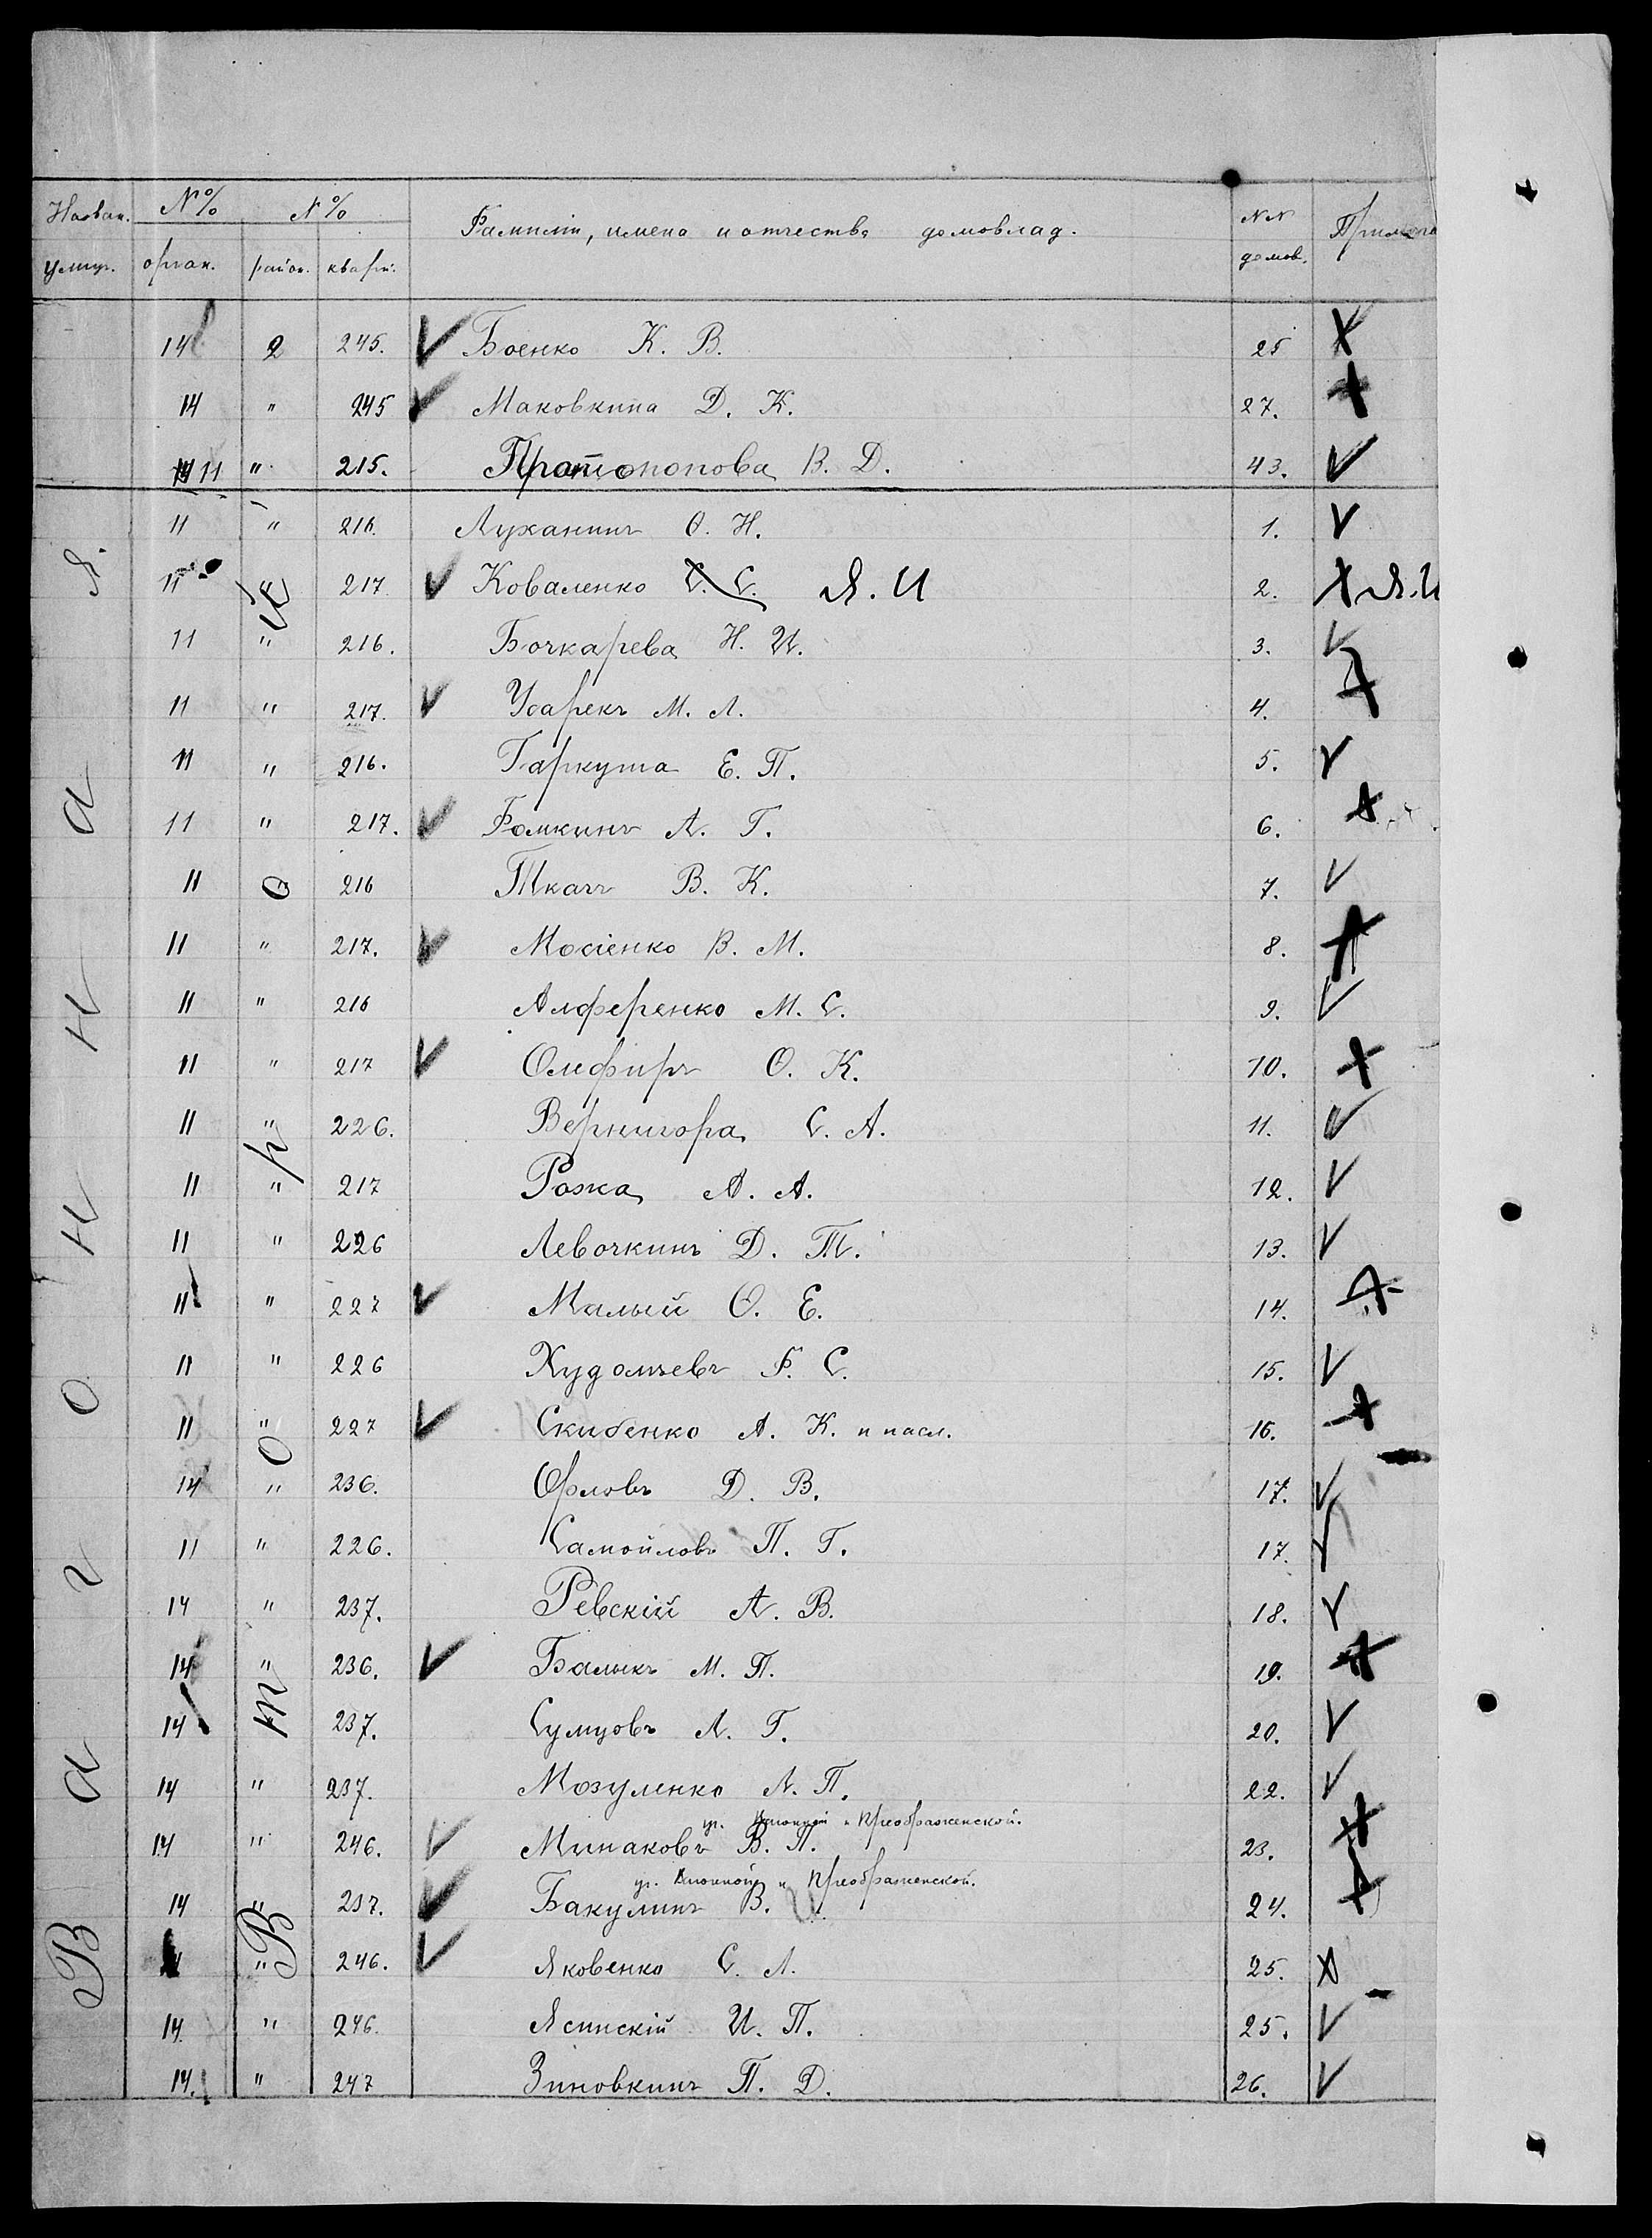 Назван. улиц. № № орган. № № район. кварт. Фамиліи, имена и отчества домовлад. №№ домов. Примѣча
14 2 245. Боенко К. В. 25
14 " 245 Маковкина Д. К. 27.
11 " 215. Протопопова В. Д. 43.
Вагонная.
Второй
11 " 216. Луханинъ Ѳ. Н. 1.
11 " 217. Коваленко С. С. Я. И 2. Я. И
11 " 216. Бочкарева Н. И. 3.
11 " 217. Усарекъ М. Л. 4.
11 " 216. Гаркуша Е. П. 5.
11 " 217. Фомкинъ А. Г. 6.
11 " 216 Ткачъ В. К. 7.
11 " 217. Мосіенко В. М. 8.
11 " 216 Алференко М. С. 9.
11 " 217 Олефиръ Ѳ. К. 10.
11 " 226. Вернигора С. А. 11.
11 " 217 Рожа А. А. 12.
11 " 226 Левочкинъ Д. Т. 13.
11 " 227 Малый Ѳ. Е. 14.
11 " 226 Худолѣевъ Ф. С. 15.
11 " 227 Скибенко А. К. и насл. 16.
14 " 236. Орловъ Д. В. 17.
11 " 226. Самойловъ П. Г. 17.
14 " 237. Ревскій А. В. 18.
14 " 236. Балыкъ М. П. 19.
14 " 237. Сумцовъ А. Г. 20.
14 " 237. Мозуленко А. П. 22.
уг. и Преображенской.
14 " 246. Минаковъ В. Л. 23.
уг. и Преображенской.
14 " 237. Бакулинъ В. 24.
" 246. Яковенко С. Л. 25.
14. " 246. Ясинскій И. П. 25.
14. " 247 Зиновкинъ П. Д. 26.